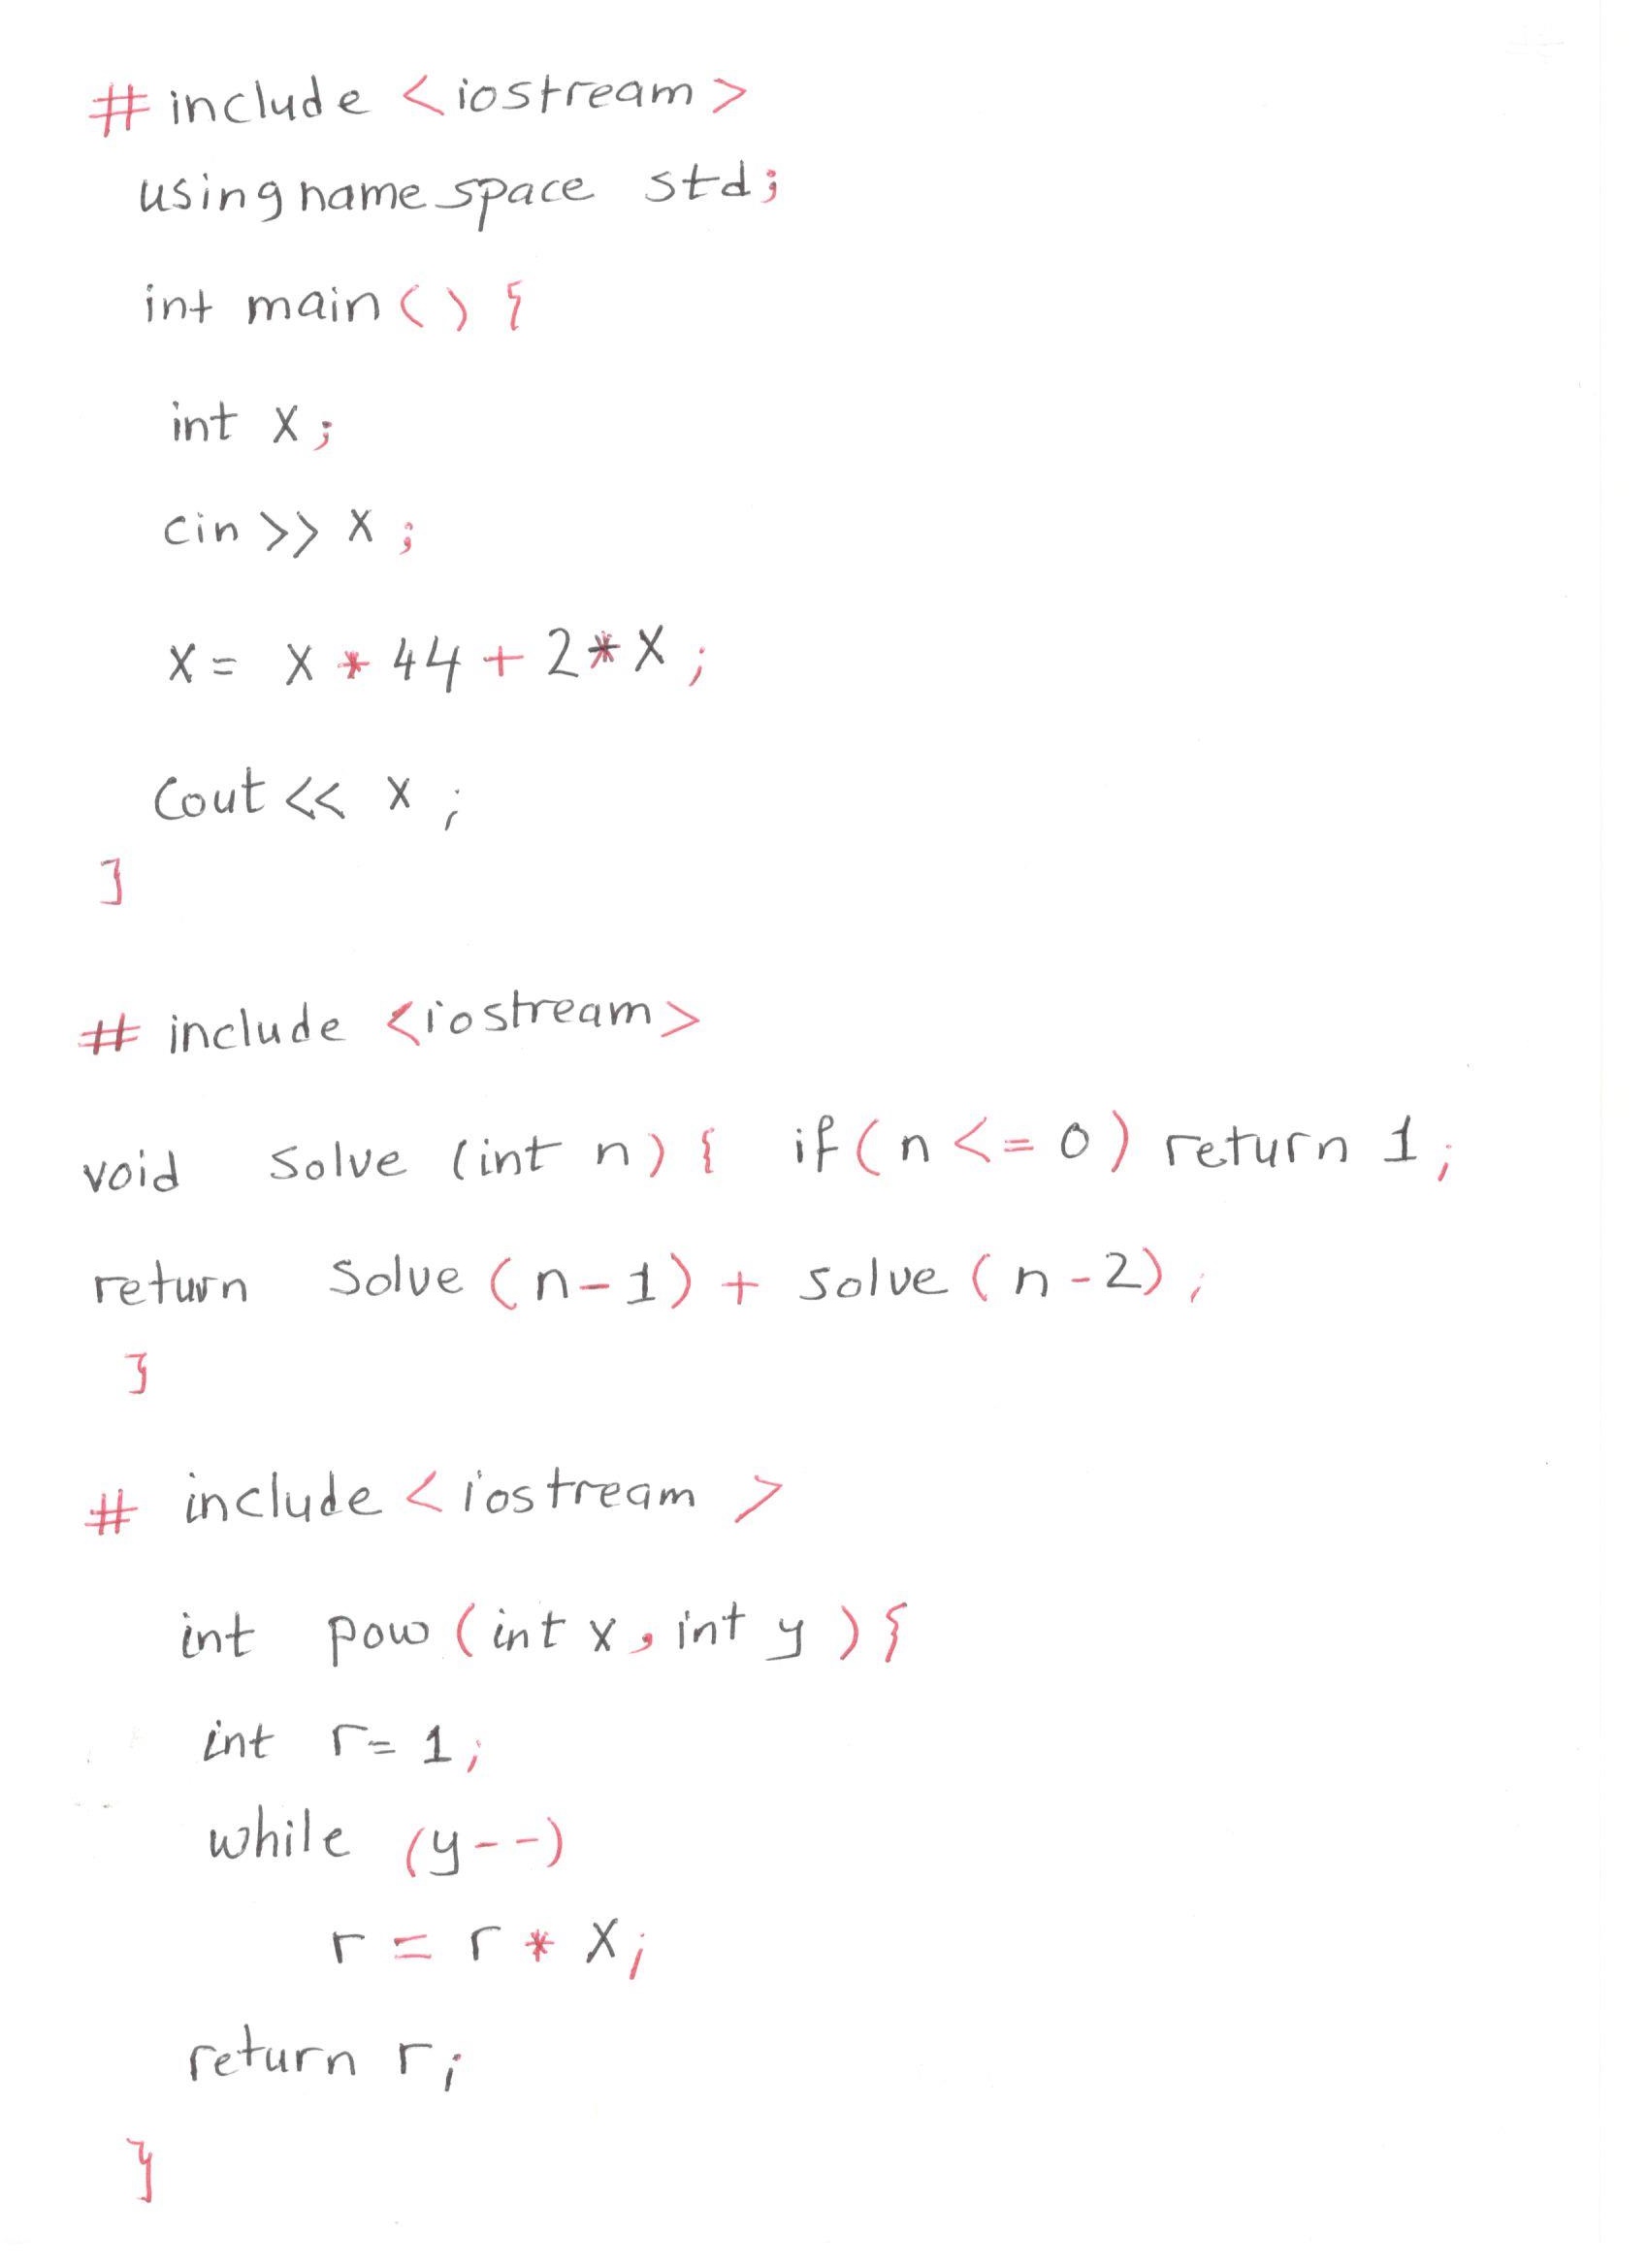 #include <iostream>
using namespace std;
int main() {
int x;
cin >> x;
x = x * 44 + 2 * x;
cout << x;
}
# include <iostream>
void solve (int n) { if (n <= 0) return 1;
return solve (n-1) + solve (n-2);
}
# include <iostream >
int pow (int x, int y) {
int r = 1;
while (y--)
r = r * x;
return r;
}